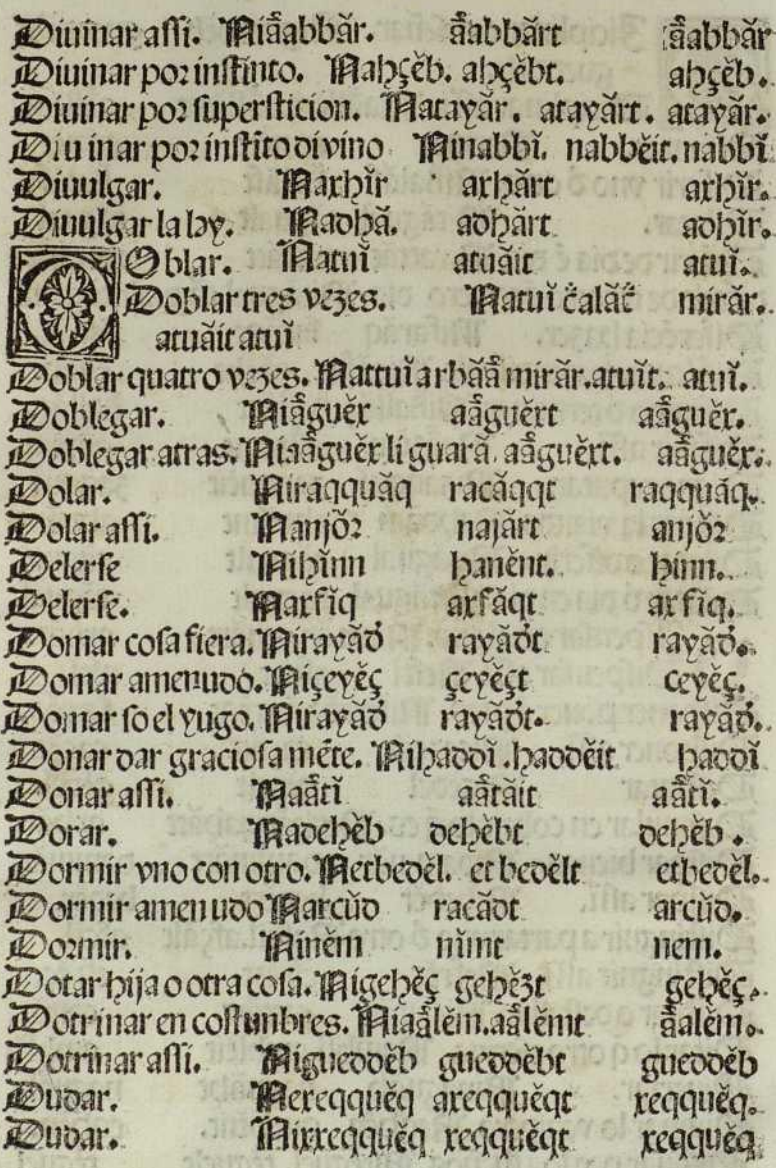 Diuinar assi. Niââabbăr. ââabbărt ââabbăr
Diuinar por instinto. Nahçĕb. ahçĕbt. ahçĕb.
Diuinar por supersticion. Natayăr. atayărt. atayăr.
Diuinar por instĩto diuino Ninabbĭ. nabbĕit. nabbĭ
Diuulgar. Naxhĭr axhărt axhĭr.
Diuulgar la ley. Nadhă. adhărt adhĭr.
DOblar. Natuĭ atuăit atuĭ.
Doblar tres vezes. Natuĭ ĉalăĉ mirăr.
atuăit atuĭ
Doblar quatro vezes. Nattuĭ arbăâ mirăr. atuĭt. atuĭ.
Doblegar. Niâguĕx aâguĕxt aâguĕx.
Doblegar atras. Niaâguĕx li guară. aâguĕxt. aâguĕx.
Dolar. Niraqquăq racăqqt raqquăq.
Dolar assi. Nanjŏr najărt anjŏr
Delerse Nihĭnn hanĕnt. hĭnn.
Delerse. Naxfĭq axfăqt axfĭq.
Domar cosa fiera. Nirayăd rayădt rayăd.
Domar amenudo. Niçeyĕç çeyĕçt ceyĕç.
Domar so el yugo. Nirayăd rayădt. rayăd.
Donar dar graciosa mẽte. Nihaddĭ. haddĕit haddĭ
Donar assi. Naâtĭ aâtăit aâtĭ.
Dorar. Nadehĕb dehĕbt dehĕb.
Dormir vno con otro. Netbedĕl. etbedĕlt etbedĕl.
Dormir amenudo Narcŭd racădt arcŭd.
Dormir. Ninĕm nĭmt nem.
Dotar hija o otra cosa. Nigehĕç gehĕzt gehĕç.
Dotrinar en costunbres. Niaâlĕm. aâlĕmt âalĕm.
Dotrinar assi. Nigueddĕb gueddĕbt gueddĕb
Dudar. Nexeqquĕq axeqquĕqt xeqquĕq.
Dudar. Nixxeqquĕq xeqquĕqt xeqquĕq